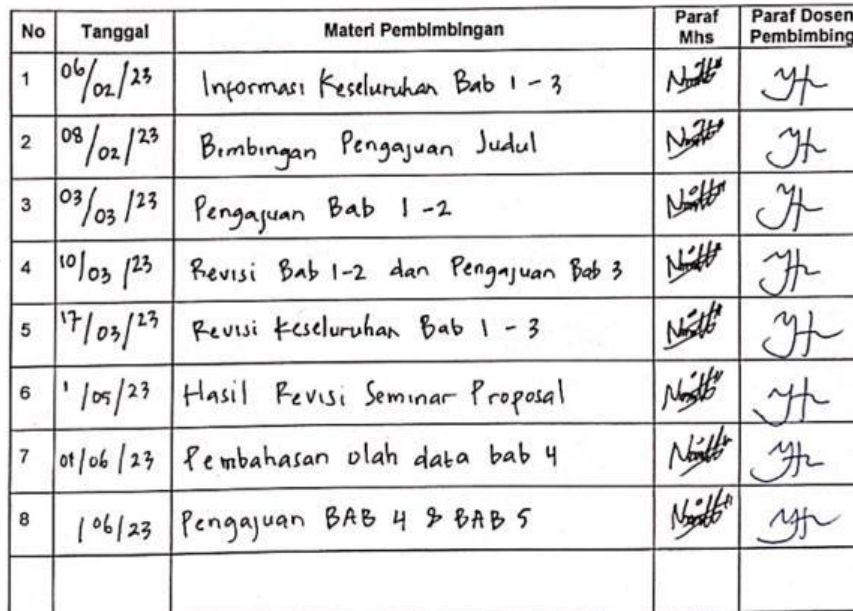 No Tanggal Materi Pembimbingan Paraf Mhs Paraf Dosen Pembimbing
1 06/02/23 Informasi Keseluruhan Bab 1 - 3
2 08/02/23 Bimbingan Pengajuan Judul
3 03/03/23 Pengajuan Bab 1 - 2
4 10/03/23 Revisi Bab 1-2 dan Pengajuan Bab 3
5 17/03/23 Revisi Keseluruhan Bab 1 - 3
6 1/05/23 Hasil Revisi Seminar Proposal
7 /06/23 Pembahasan olah data bab 4
8 /06/23 Pengajuan BAB 4 & BAB 5